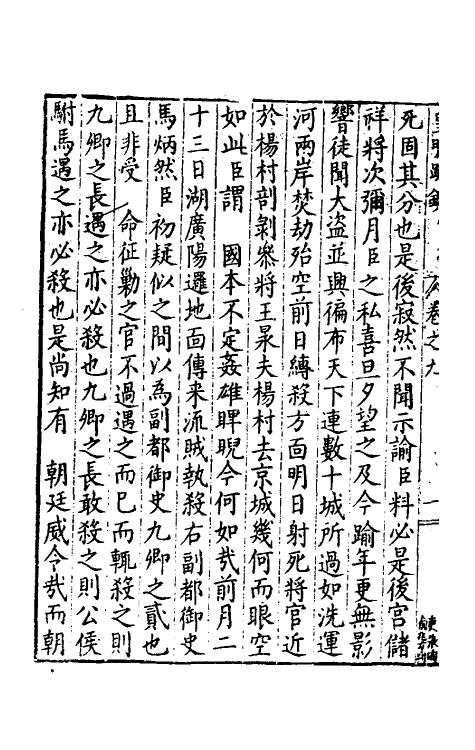 皇明疏鈔 卷之九
死固其分也是後寂然不聞示諭臣料必是後宮儲
祥將次彌月臣之私喜旦夕望之及今踰年更無影
響徒聞大盜並興徧布天下連數十城所過如洗運
河兩岸焚劫殆空前日縛殺方面明日射死將官近
於楊村剖剝叅將王杲夫楊村去京城幾何而眼空
如此臣謂 國本不定姦雄睥睨今何如㢤前月二
十三日湖廣陽邏地面傳来流賊執殺右副都御史
馬炳然臣初疑似之間以為副都御史九卿之貳也
且非受 命征勦之官不過遇之而已而輒殺之則
九卿之長遇之亦必殺也九卿之長敢殺之則公侯
駙馬遇之亦必殺也是尚知有 朝廷威令㢤而朝